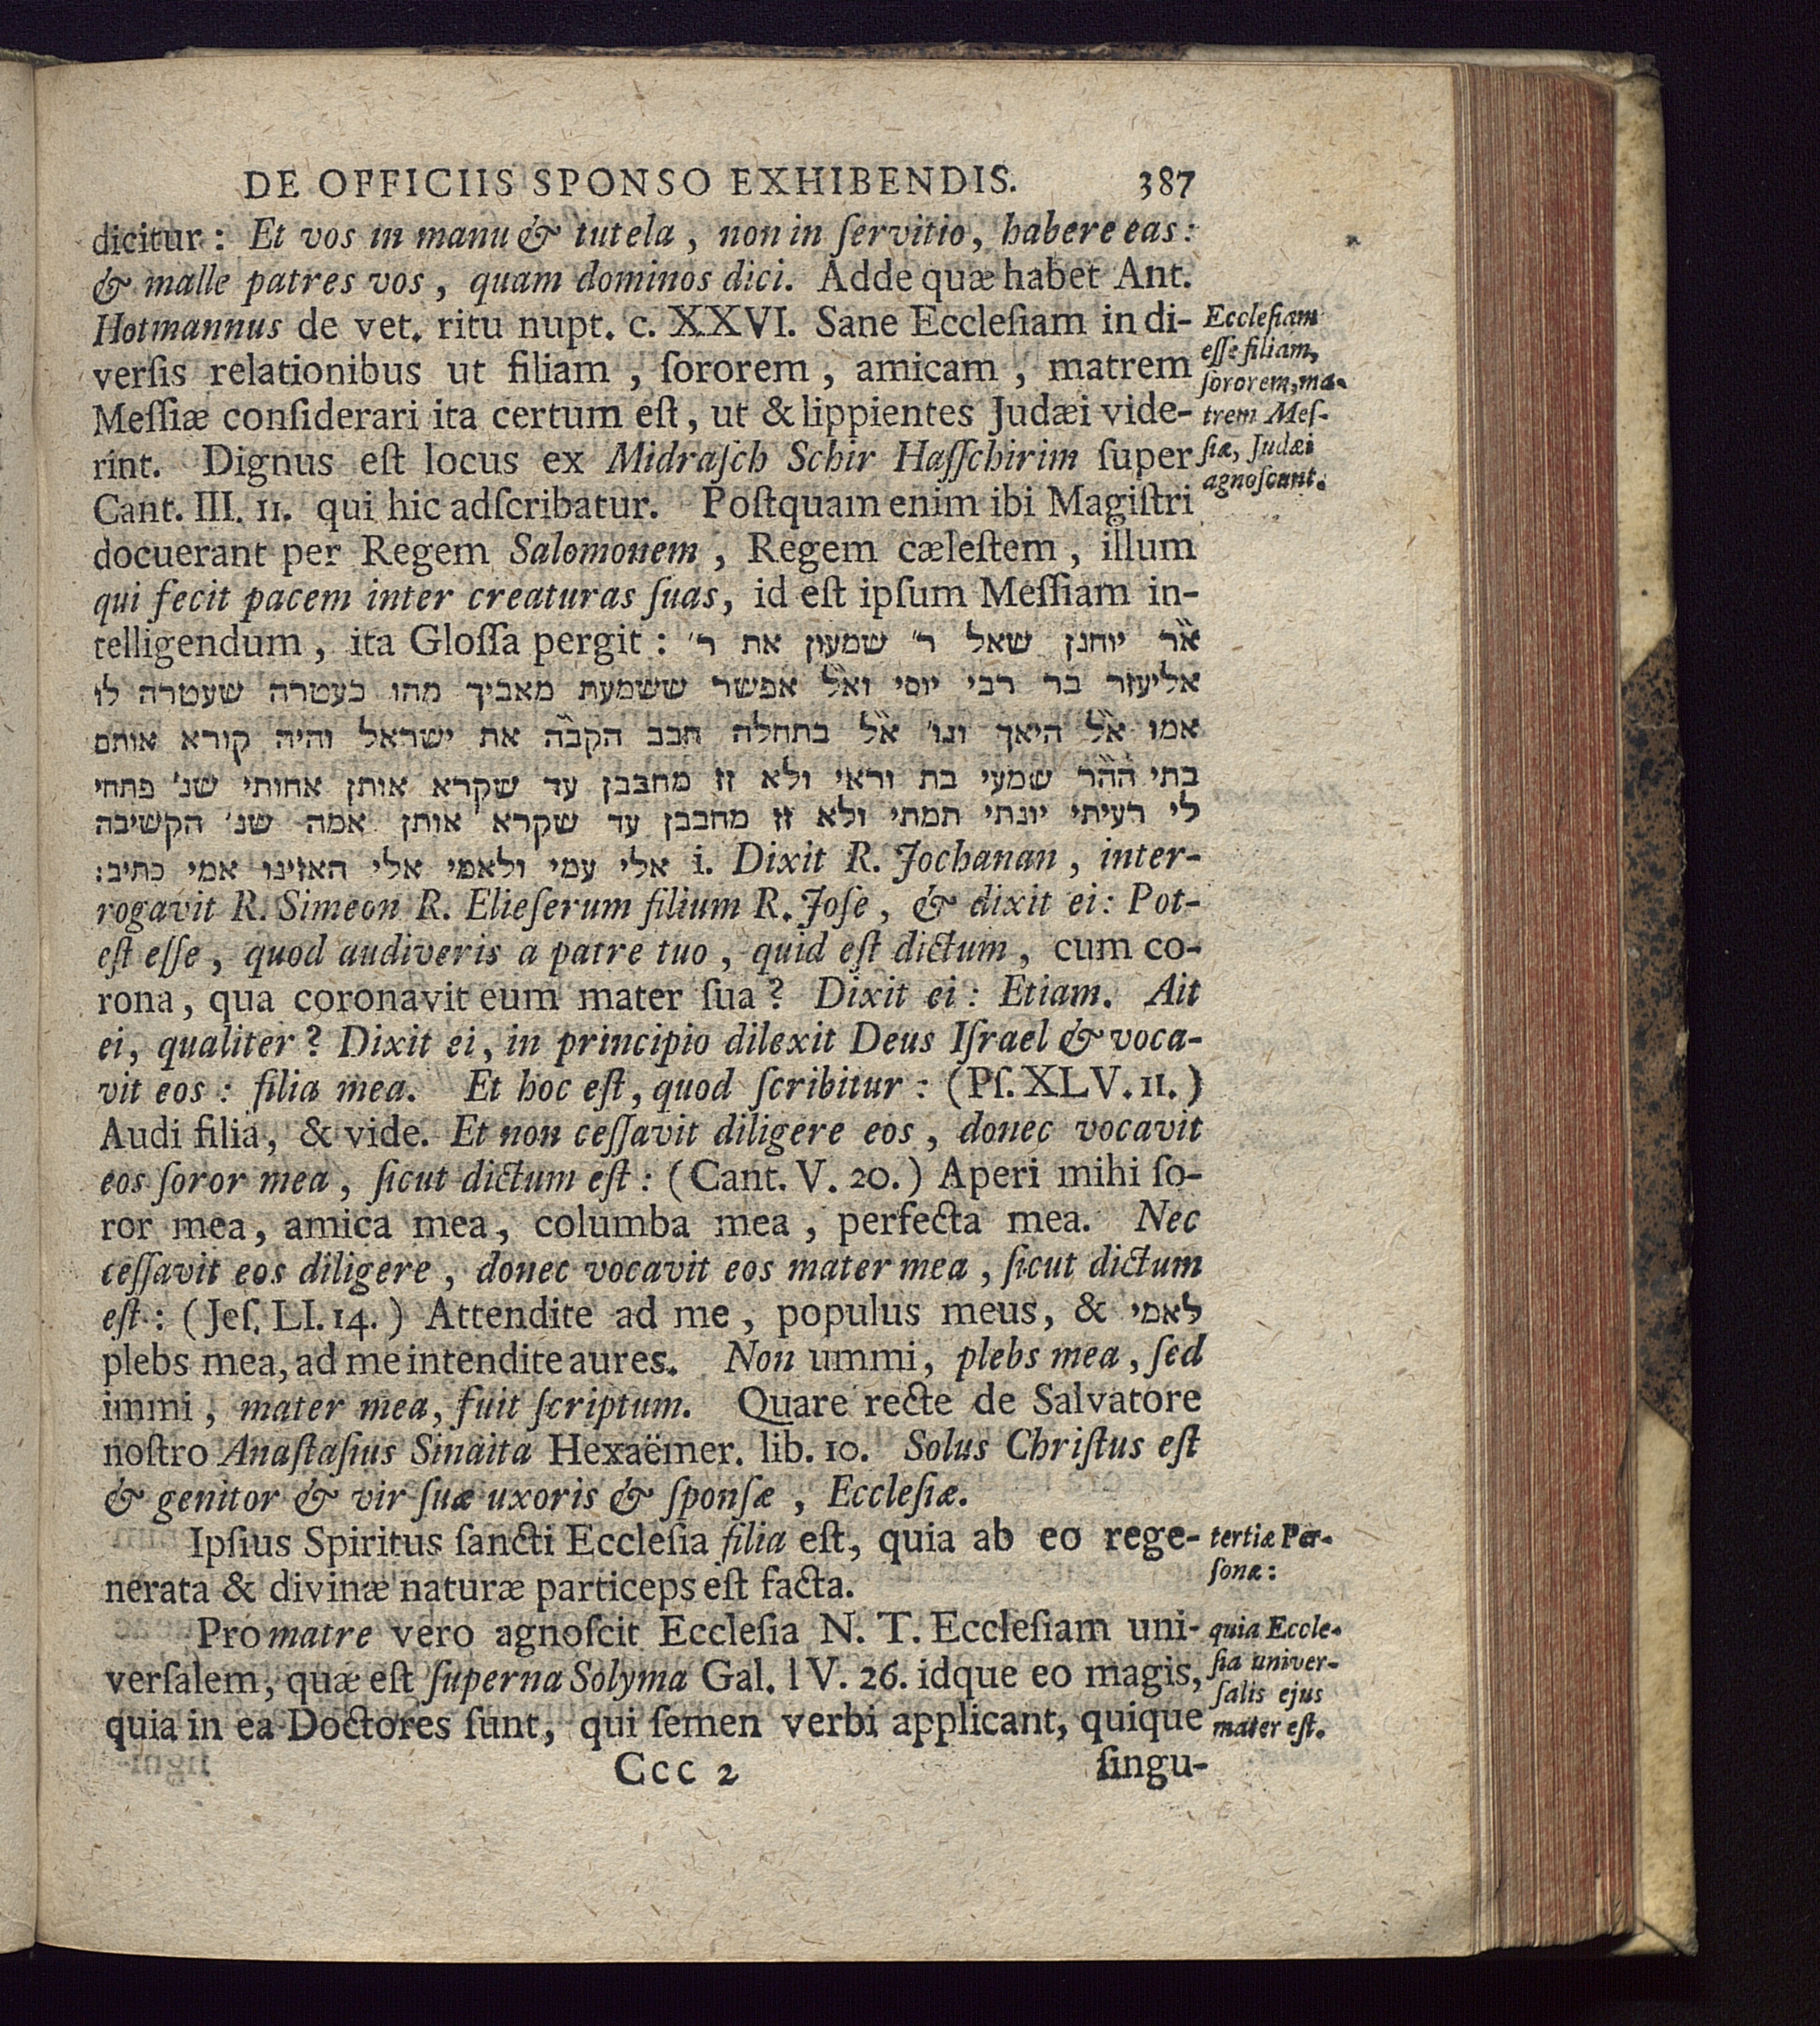 DE OFFICIIS SPONSO EXHIBENDIS. 387
dicitur: Et vos in manu & tutela, non in ſervitio, habere eas:
& malle patres vos, quam dominos dici. Adde quæ habet Ant.
Hotmannus de vet. ritu nupt. c. XXVI. Sane Eccleſiam in di-
verſis relationibus ut filiam, ſororem, amicam, matrem
Meſſiæ conſiderari ita certum eſt, ut & lippientes Judæi vide-
rint. Dignus eſt locus ex Midraſch Schir Haſſchirim ſuper
Cant. III. 11. qui hic adſcribatur. Poſtquam enim ibi Magiſtri
docuerant per Regem Salomonem, Regem cæleſtem, illum
qui fecit pacem inter creaturas ſuas, id eſt ipſum Meſſiam in-
telligendum, ita Gloſſa pergit: א״ר יוחנן שאל ר׳ שמעון את ר׳
אליעזר בר רבי יוסי וא״ל אפשר ששמעת מאביך מהו בעטרה שעטרה לו
אמו א״ל היאך וגו׳ א״ל בתחלה חבב הקב״ה את ישראל והיה קורא אותם
בתי הה״ר שמעי בת וראי ולא זז מחבבן עד שקרא אותן אחותי שנ׳ פתחי
לי רעיתי יונתי תמתי ולא זז מחבבן עד שקרא אותן אמה שנ׳ הקשיבה
אלי עמי ולאמי אלי האזינו אמי כתיב: i. Dixit R. Jochanan, inter-
rogavit R. Simeon R. Elieſerum filium R. Joſe, & dixit ei: Pot-
eſt eſſe, quod audiveris a patre tuo, quid eſt dictum, cum co-
rona, qua coronavit eum mater ſua? Dixit ei: Etiam. Ait
ei, qualiter? Dixit ei, in principio dilexit Deus Iſrael & voca-
vit eos: filia mea. Et hoc eſt, quod ſcribitur: (Pſ. XLV. 11.)
Audi filia, & vide. Et non ceſſavit diligere eos, donec vocavit
eos ſoror mea, ſicut dictum eſt: (Cant. V. 20.) Aperi mihi ſo-
ror mea, amica mea, columba mea, perfecta mea. Nec
ceſſavit eos diligere, donec vocavit eos mater mea, ſicut dictum
eſt: (Jeſ. LI. 14.) Attendite ad me, populus meus, & לאמי
plebs mea, ad me intendite aures. Non ummi, plebs mea, ſed
immi, mater mea, fuit ſcriptum. Quare recte de Salvatore
noſtro Anaſtaſius Sinaita Hexaëmer. lib. 10. Solus Chriſtus eſt
& genitor & vir ſuæ uxoris & ſponſæ, Eccleſiæ.
Ipſius Spiritus ſancti Eccleſia filia eſt, quia ab eo rege-
nerata & divinæ naturæ particeps eſt facta.
Pro matre vero agnoſcit Eccleſia N. T. Eccleſiam uni-
verſalem, quæ eſt ſuperna Solyma Gal. IV. 26. idque eo magis,
quia in ea Doctores ſunt, qui ſemen verbi applicant, quique
Ccc 2 ſingu-
Eccleſiam
eſſe filiam,
ſororem, ma-
trem Meſ-
ſiæ, Judæi
agnoſcunt.
tertiæ Per-
ſonæ:
quia Eccle-
ſia univer-
ſalis ejus
mater eſt.